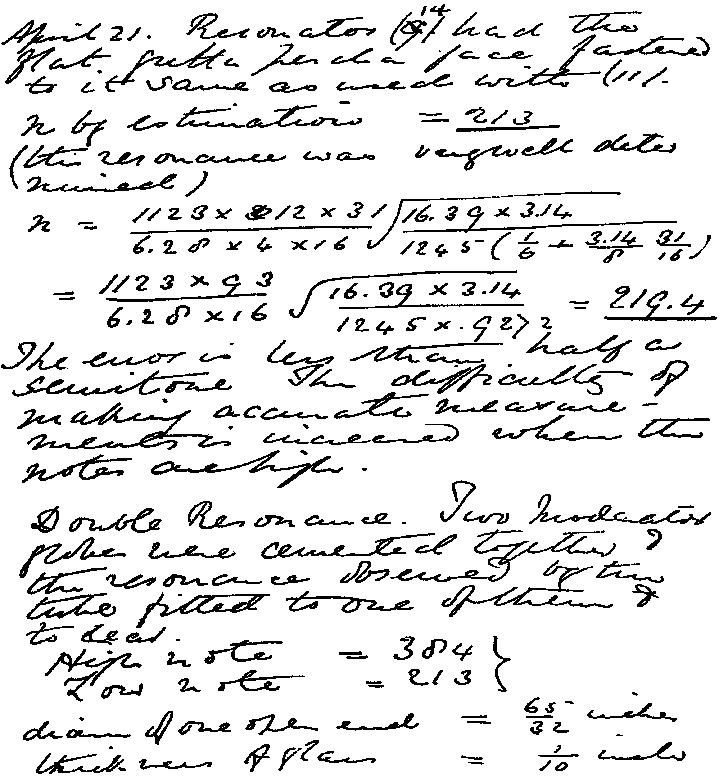 April 21. Resonator (14) had the
flat gutta percha face fastened
to it same as used with (11).
n by estimation = 213
(this resonance was very well deter
mined)
n = 1123 × 12 × 31 / 6.28 × 4 × 16 √ 16.39 × 3.14 / 1245 ( 1/6 + 3.14/8 31/16 )
= 1123 × 93 / 6.28 × 16 √ 16.39 × 3.14 / 1245 × .9272 = 219.4
The error is less than half a
semitone The difficulty of
making accurate measure-
ments is increased when the
notes are high.
Double Resonance. Two moderator
globes were cemented together &
the resonance observed by the
tube fitted to one of them &
to head.
High note = 384 }
Low note = 213
diam of one open end = 65/32 inches
thickness of glass = 1/10 inch